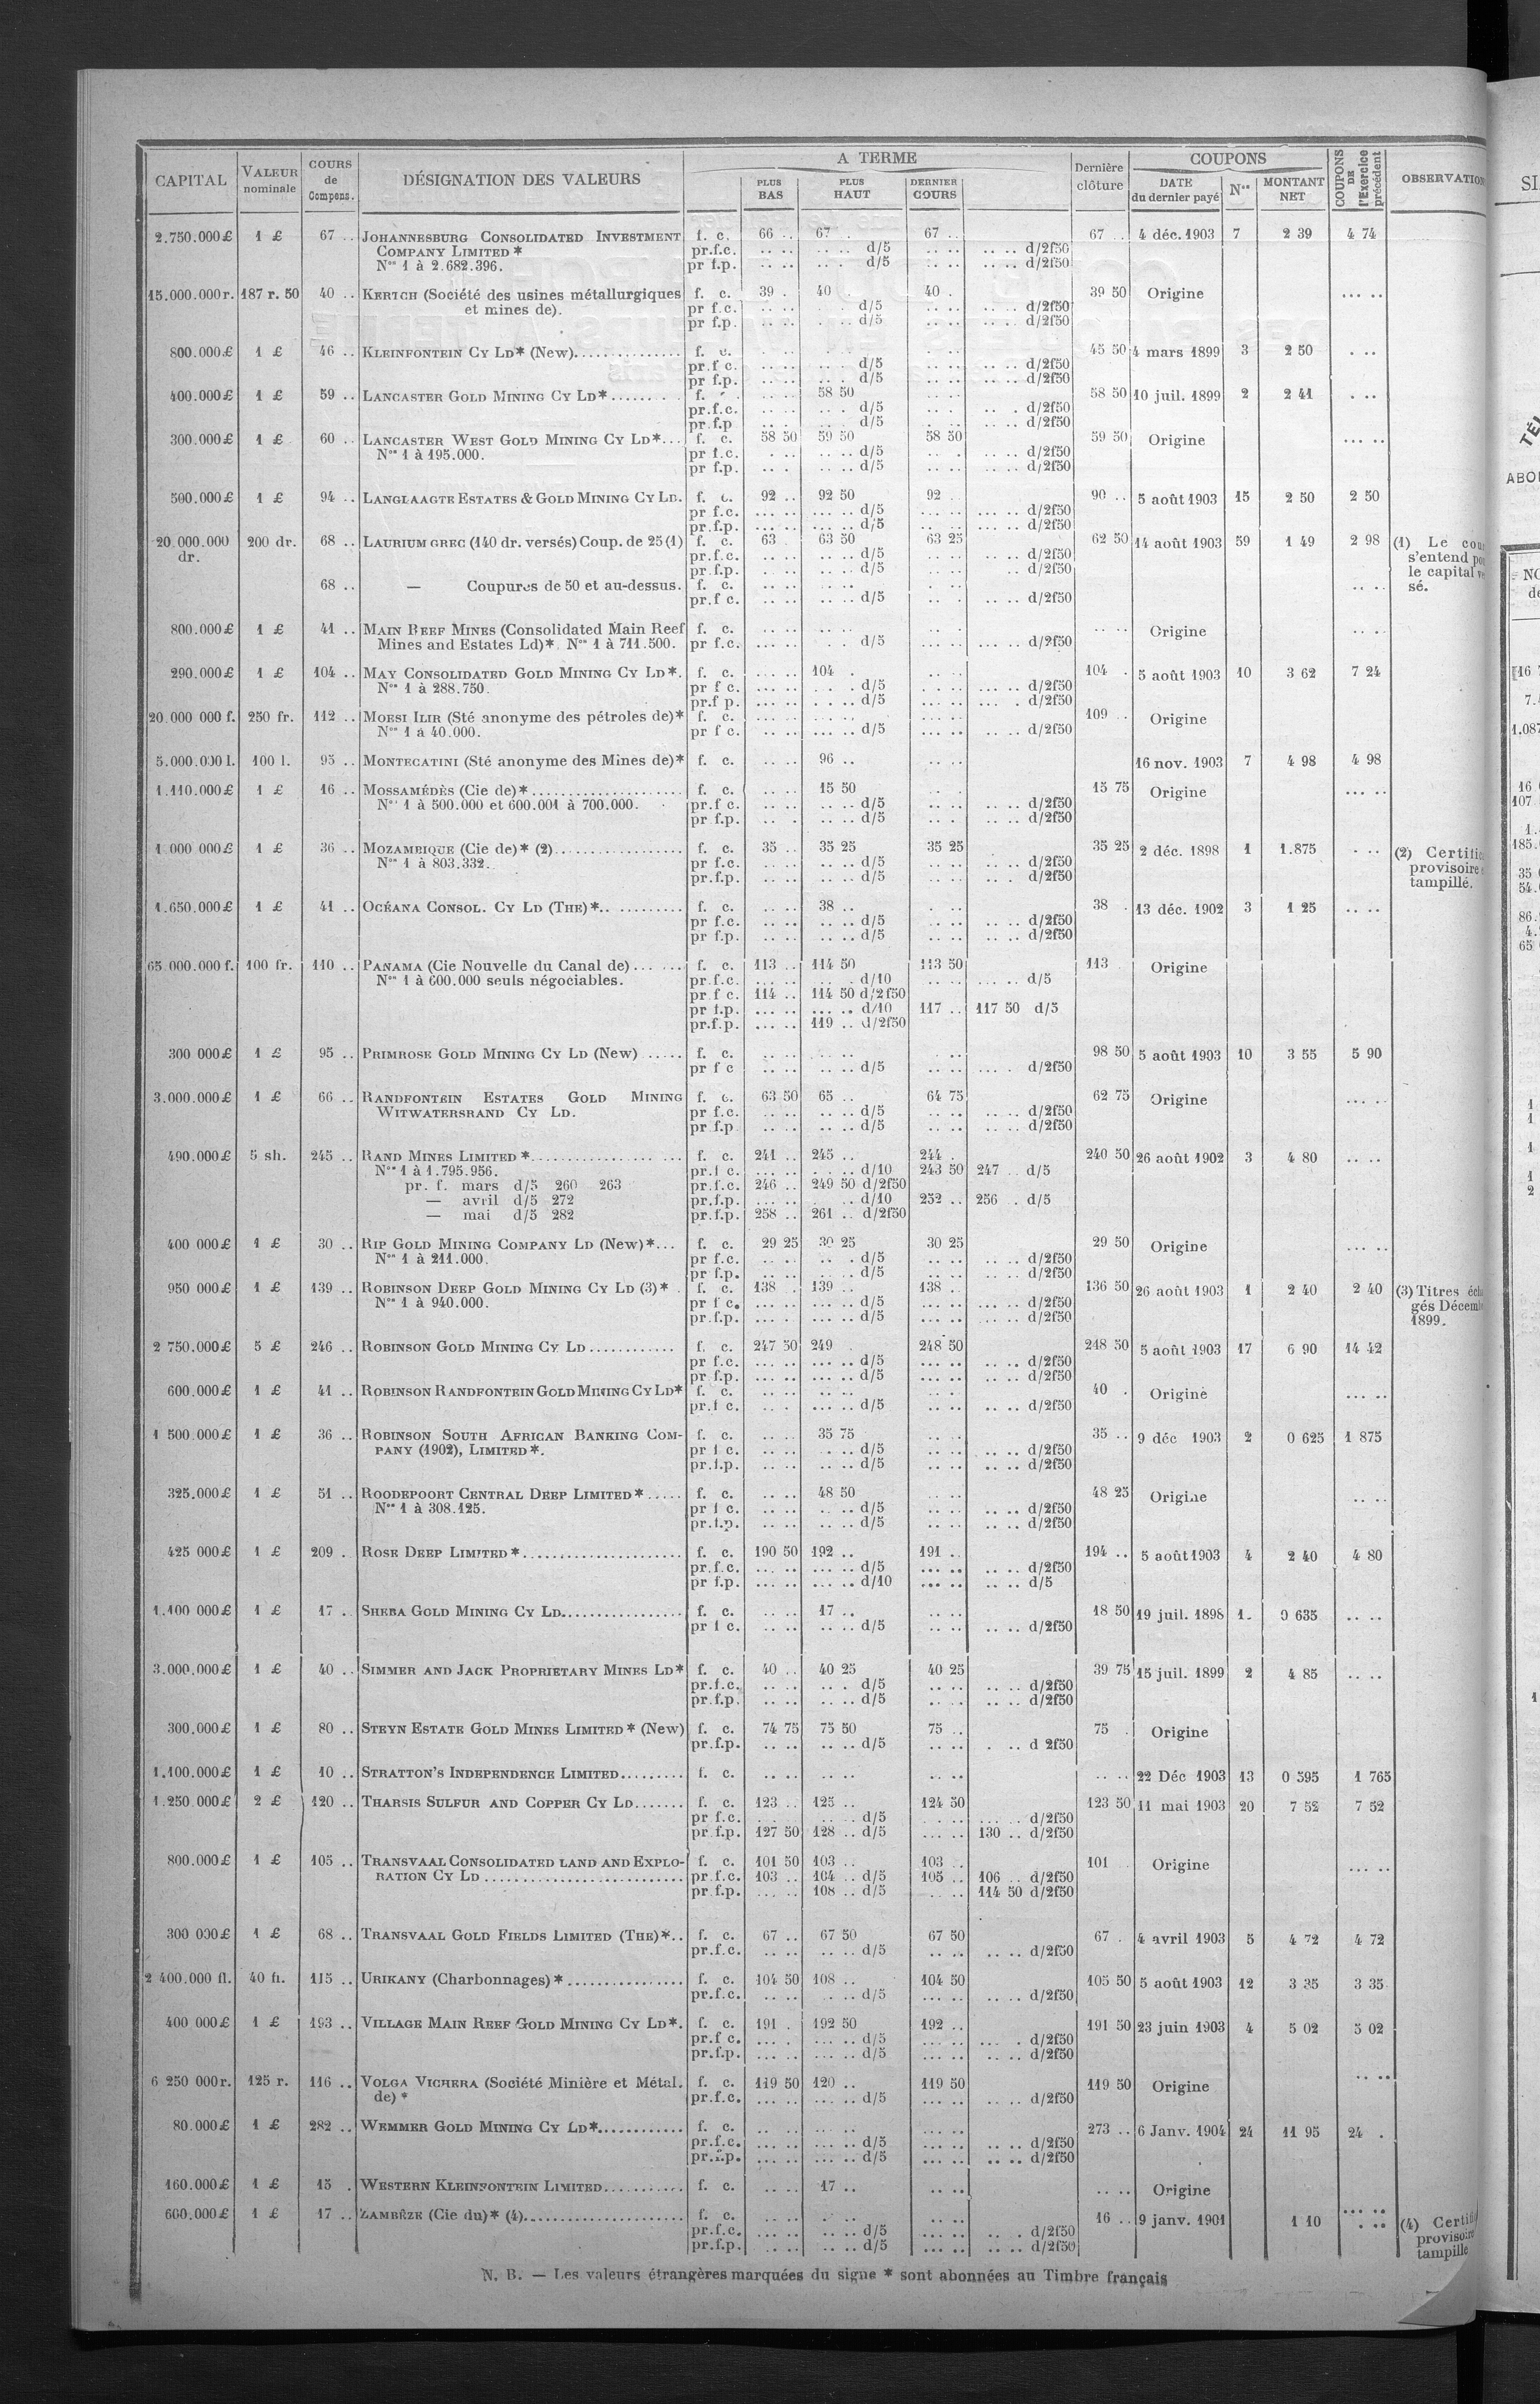 CAPITAL VALEUR nominale COURS de Compens. DÉSIGNATION DES VALEURS A TERME PLUS BAS PLUS HAUT DERNIER COURS Dernière clôture COUPONS DATE du dernier payé Nos MONTANT NET COUPONS DE l'Exercice précédent OBSERVATION
2.750.000£ 1 £ 67 .. JOHANNESBURG CONSOLIDATED INVESTMENT f. c. 66 .. 67 . 67 .. 67 .. 4 déc. 1903 7 2 39 4 74
COMPANY LIMITED * pr.f.c. .. .. .. .. d/5 .. .. .. .. d/2f50
Nos 1 à 2.682.396. pr f.p. .. .. .. . d/5 .. .. .. .. d/2f50
15.000.000r. 187 r. 50 40 .. KERTCH (Société des usines métallurgiques f. c. 39 . 40 . 40 . 39 50 Origine ... ..
et mines de). pr f.c. .. .. . .. d/5 .. .. .. .. d/2f50
pr f.p. .. .. . .. d/5 .. .. .. .. d/2f50
800.000£ 1 £ 46 .. KLEINFONTEIN CY LD* (New).............. f. c. 45 50 4 mars 1899 3 2 50 . ..
pr.f c. .. .. .. .. d/5 .. .. d/2f50
pr f.p. .. .. .. . d/5 .. .. d/2f50
400.000£ 1 £ 59 .. LANCASTER GOLD MINING CY LD*........ f. 58 50 58 50 10 juil. 1899 2 2 41 . ..
pr.f.c. .. .. .. . d/5 .. .. .. . d/2f50
pr.f.p .. . .. .. d/5 .. .. d/2f50
300.000£ 1 £ 60 .. LANCASTER WEST GOLD MINING CY LD*... f. c. 58 50 59 50 58 50 59 50 Origine ... ..
Nos 1 à 195.000. pr f.c. . .. .. .. d/5 .. . .. .. d/2f50
pr f.p. .. . .. .. d/5 .. .. .. .. d/2f50
500.000£ 1 £ 94 .. LANGLAAGTE ESTATES & GOLD MINING CY LD. f. c. 92 .. 92 50 92 . 90 .. 5 août 1903 15 2 50 2 50
pr f.c. ... .. ... .. d/5 .. .. ... .. d/2f50
pr.f.p. ... .. ... .. d/5 .. .. ... .. d/2f50
20.000.000 200 dr. 68 .. LAURIUM GREC (140 dr. versés) Coup. de 25 (1) f. c. 63 63 50 63 25 62 50 14 août 1903 59 1 49 2 98 (1) Le
dr. pr.f.c. .. .. .. .. d/5 .. .. .. .. d/2f50 s'entend
pr.f.p. .. .. .. .. d/5 .. .. .. d/2f50 le capital
68 .. — Coupures de 50 et au-dessus. f. c. .. .. .. .. .. .. .. .. sé.
pr.f c. .. .. .. .. d/5 .. . .. .. d/2f50
800.000£ 1 £ 41 .. MAIN REEF MINES (Consolidated Main Reef f. c. .. .. .. .. .. . .. .. Origine .. ..
Mines and Estates Ld)*. Nos 1 à 711.500. pr f.c. ... .. . .. d/5 .. .. ... .. d/2f50
290.000£ 1 £ 104 .. MAY CONSOLIDATED GOLD MINING CY LD*. f. c. ... .. 104 . .. .. 104 . 5 août 1903 10 3 62 7 24
Nos 1 à 288.750. pr f c. ... .. . . . d/5 .. .. ... .. d/2f50
pr.f p. ... .. . .. . d/5 .. .. ... . d/2f50
20.000 000 f. 250 fr. 112 .. MOESI ILIR (Sté anonyme des pétroles de)* f. c. 109 .. Origine
Nos 1 à 40.000. pr f c. ... .. ... .. d/5 ... .. d/2f50
5.000.000 l. 100 l. 95 .. MONTECATINI (Sté anonyme des Mines de)* f. c. .. .. 96 .. .. .. 16 nov. 1903 7 4 98 4 98
1.110.000£ 1 £ 16 .. MOSSAMÉDÈS (Cie de)*.................... f. c. .. .. 15 50 .. . 15 75 Origine ... ..
Nos 1 à 500.000 et 600.001 à 700.000. pr.f c. .. .. .. .. d/5 .. .. .. .. d/2f50
pr.f.p. .. . .. .. d/5 .. .. .. .. d/2f50
1 000 000£ 1 £ 36 .. MOZAMBIQUE (Cie de)* (2)................. f. c. 35 .. 35 25 35 25 35 25 2 déc. 1898 1 1.875 . .. (2)
Nos 1 à 803.332. pr f.c. .. .. .. .. d/5 .. .. .. .. d/2f50 provisoire
pr.f.p. .. .. .. .. d/5 .. .. .. . d/2f50 tampillé.
1.650.000£ 1 £ 41 .. OCÉANA CONSOL. CY LD (THE)*............ f. c. .. .. 38 .. . .. 38 . 13 déc. 1902 3 1 25 .. ..
pr f.c. .. .. .. .. d/5 .. .. .. .. d/2f50
pr f.p. .. .. .. .. d/5 .. .. .. .. d/2f50
65.000.000 f. 100 fr. 110 .. PANAMA (Cie Nouvelle du Canal de)...... f. c. 113 .. 114 50 113 50 113 . Origine
Nos 1 à 600.000 seuls négociables. pr.f.c. ... .. .. . d/10 .. .. ... .. d/5
pr f c. 114 .. 114 50 d/2f50
pr f.p. ... .. ... .. d/10 117 .. 117 50 d/5
pr.f.p. ... .. 119 .. d/2f50
300 000£ 1 £ 95 .. PRIMROSE GOLD MINING CY LD (New) ..... f. c. .. .. .. .. .. .. 98 50 5 août 1903 10 3 55 5 90
pr f c .. .. .. .. d/5 .. .. ... . d/2f50
3.000.000£ 1 £ 66 .. RANDFONTEIN ESTATES GOLD MINING f. c. 63 50 65 .. 64 75 62 75 Origine ... ..
WITWATERSRAND CY LD. pr f.c. .. .. .. .. d/5 .. .. .. .. d/2f50
pr f.p .. .. .. .. d/5 .. .. .. .. d/2f50
490.000£ 5 sh. 245 .. RAND MINES LIMITED *.................... f. c. 241 .. 245 .. 244 . 240 50 26 août 1902 3 4 80 .. ..
Nos 1 à 1.795.956. pr.f c. ... .. . .. d/10 243 50 247 .. d/5
pr. f. mars d/5 260 263 pr.f.c. 246 .. 249 50 d/2f50
— avril d/5 272 pr.f.p. ... .. .. d/10 252 .. 256 . d/5
— mai d/5 282 pr.f.p. 258 .. 261 .. d/2f50
400 000£ 1 £ 30 .. RIP GOLD MINING COMPANY LD (New)*... f. c. 29 25 30 25 30 25 29 50 Origine ... ..
Nos 1 à 211.000. pr f.c. .. .. .. . d/5 .. .. .. .. d/2f50
pr f.p. .. .. .. . d/5 .. .. .. .. d/2f50
950 000£ 1 £ 139 .. ROBINSON DEEP GOLD MINING CY LD (3)* . f. c. 138 . 139 .. 138 .. 136 50 26 août 1903 1 2 40 2 40 (3) Titres
Nos 1 à 940.000. pr f c. ... .. ... .. d/5 ... .. .. .. d/2f50 gés
pr.f.p. ... .. ... .. d/5 ... .. .. .. d/2f50 1899.
2 750.000£ 5 £ 246 .. ROBINSON GOLD MINING CY LD............ f. c. 247 50 249 . 248 50 248 50 5 août 1903 17 6 90 14 42
pr f.c. ... .. ... .. d/5 ... .. .. .. d/2f50
pr f.p. ... .. ... .. d/5 ... .. .. .. d/2f50
600.000£ 1 £ 41 .. ROBINSON RANDFONTEIN GOLD MINING CY LD* f. c. .. .. .. .. .. . 40 . Origine ... ..
pr.f c. .. . ... .. d/5 .. .. .. .. d/2f50
1 500.000£ 1 £ 36 .. ROBINSON SOUTH AFRICAN BANKING COM- f. c. .. .. 35 75 .. .. 35 .. 9 déc 1903 2 0 625 1 875
PANY (1902), LIMITED*. pr f c. .. .. . .. d/5 .. .. .. .. d/2f50
pr.f.p. .. .. .. .. d/5 .. .. .. .. d/2f50
325.000£ 1 £ 51 .. ROODEPOORT CENTRAL DEEP LIMITED*..... f. c. .. .. 48 50 .. .. 48 25 Origine .. ..
Nos 1 à 308.125. pr f c. .. .. .. .. d/5 .. .. .. .. d/2f50
pr.f.p. .. .. .. .. d/5 .. .. .. .. d/2f50
425 000£ 1 £ 209 . ROSE DEEP LIMITED*..................... f. c. 190 50 192 .. 191 .. 194 .. 5 août 1903 4 2 40 4 80
pr.f.c. ... .. ... .. d/5 ... .. .. .. d/2f50
pr f.p. ... .. ... .. d/10 ... .. .. .. d/5
1.100 000£ 1 £ 17 . SHEBA GOLD MINING CY LD................ f. c. .. .. 17 .. .. .. 18 50 19 juil. 1898 1. 0 635 .. ..
pr f c. .. .. .. .. d/5 .. .. .. .. d/2f50
3.000.000£ 1 £ 40 .. SIMMER AND JACK PROPRIETARY MINES LD* f. c. 40 .. 40 25 40 25 39 75 15 juil. 1899 2 4 85 .. ..
pr.f.c. .. .. .. . d/5 .. .. .. .. d/2f50
pr.f.p. .. .. .. .. d/5 .. .. .. .. d/2f50
300.000£ 1 £ 80 .. STEYN ESTATE GOLD MINES LIMITED* (New) f. c. 74 75 75 50 75 .. 75 . Origine
pr.f.p. .. .. .. .. d/5 .. .. . .. d 2f50
1.100.000£ 1 £ 10 .. STRATTON'S INDEPENDENCE LIMITED......... f. c. .. .. .. .. .. .. .. .. 22 Déc 1903 13 0 595 1 765
1.250.000£ 2 £ 120 .. THARSIS SULFUR AND COPPER CY LD....... f. c. 123 .. 125 .. 124 50 123 50 11 mai 1903 20 7 52 7 52
pr f.c. . .. .. .. d/5 .. .. ... .. d/2f50
pr.f.p. 127 50 128 .. d/5 ... .. 130 .. d/2f50
800.000£ 1 £ 105 .. TRANSVAAL CONSOLIDATED LAND AND EXPLO- f. c. 101 50 103 .. 103 .. 101 .. Origine ... ..
RATION CY LD .......................... pr.f.c. 103 .. 104 .. d/5 105 .. 106 .. d/2f50
pr f.p. ... .. 108 .. d/5 .. .. 114 50 d/2f50
300 000£ 1 £ 68 .. TRANSVAAL GOLD FIELDS LIMITED (THE)*.. f. c. 67 .. 67 50 67 50 67 . 4 avril 1903 5 4 72 4 72
pr.f.c. .. .. .. .. d/5 .. .. .. .. d/2f50
2 400.000 fl. 40 fl. 115 .. URIKANY (Charbonnages)*................ f. c. 104 50 108 .. 104 50 105 50 5 août 1903 12 3 35 3 35
pr.f.c. .. .. . .. d/5 ... .. .. .. d/2f50
400 000£ 1 £ 193 .. VILLAGE MAIN REEF GOLD MINING CY LD*. f. c. 191 . 192 50 192 .. 191 50 23 juin 1903 4 5 02 5 02
pr.f c. ... .. ... .. d/5 ... .. ... . d/2f50
pr.f.p. ... .. ... .. d/5 ... .. .. .. d/2f50
6 250 000r. 125 r. 116 .. VOLGA VICHERA (Société Minière et Métal. f. c. 119 50 120 .. 119 50 119 50 Origine ... ..
de) * pr.f.c. ... .. ... .. d/5 ... .. .. .. d/2f50
80.000£ 1 £ 282 .. WEMMER GOLD MINING CY LD*............ f. c. .. .. ... .. ... .. 273 .. 6 Janv. 1904 24 11 95 24 .
pr.f.c. ... .. ... .. d/5 ... .. .. .. d/2f50
pr.f.p. ... .. ... .. d/5 ... .. .. .. d/2f50
160.000£ 1 £ 15 . WESTERN KLEINFONTEIN LIMITED........... f. c. .. .. 17 .. .. .. .. .. Origine
660.000£ 1 £ 17 .. ZAMBÈZE (Cie du)* (4)..................... f. c. .. .. . .. .. .. 16 .. 9 janv. 1901 1 10 ... .. (4)
pr.f.c. ... .. .. .. d/5 ... .. .. . d/2f50 provisoire
pr.f.p. ... .. .. .. d/5 ... .. .. .. d/2f50 tampillé
N. B. — Les valeurs étrangères marquées du signe * sont abonnées au Timbre français